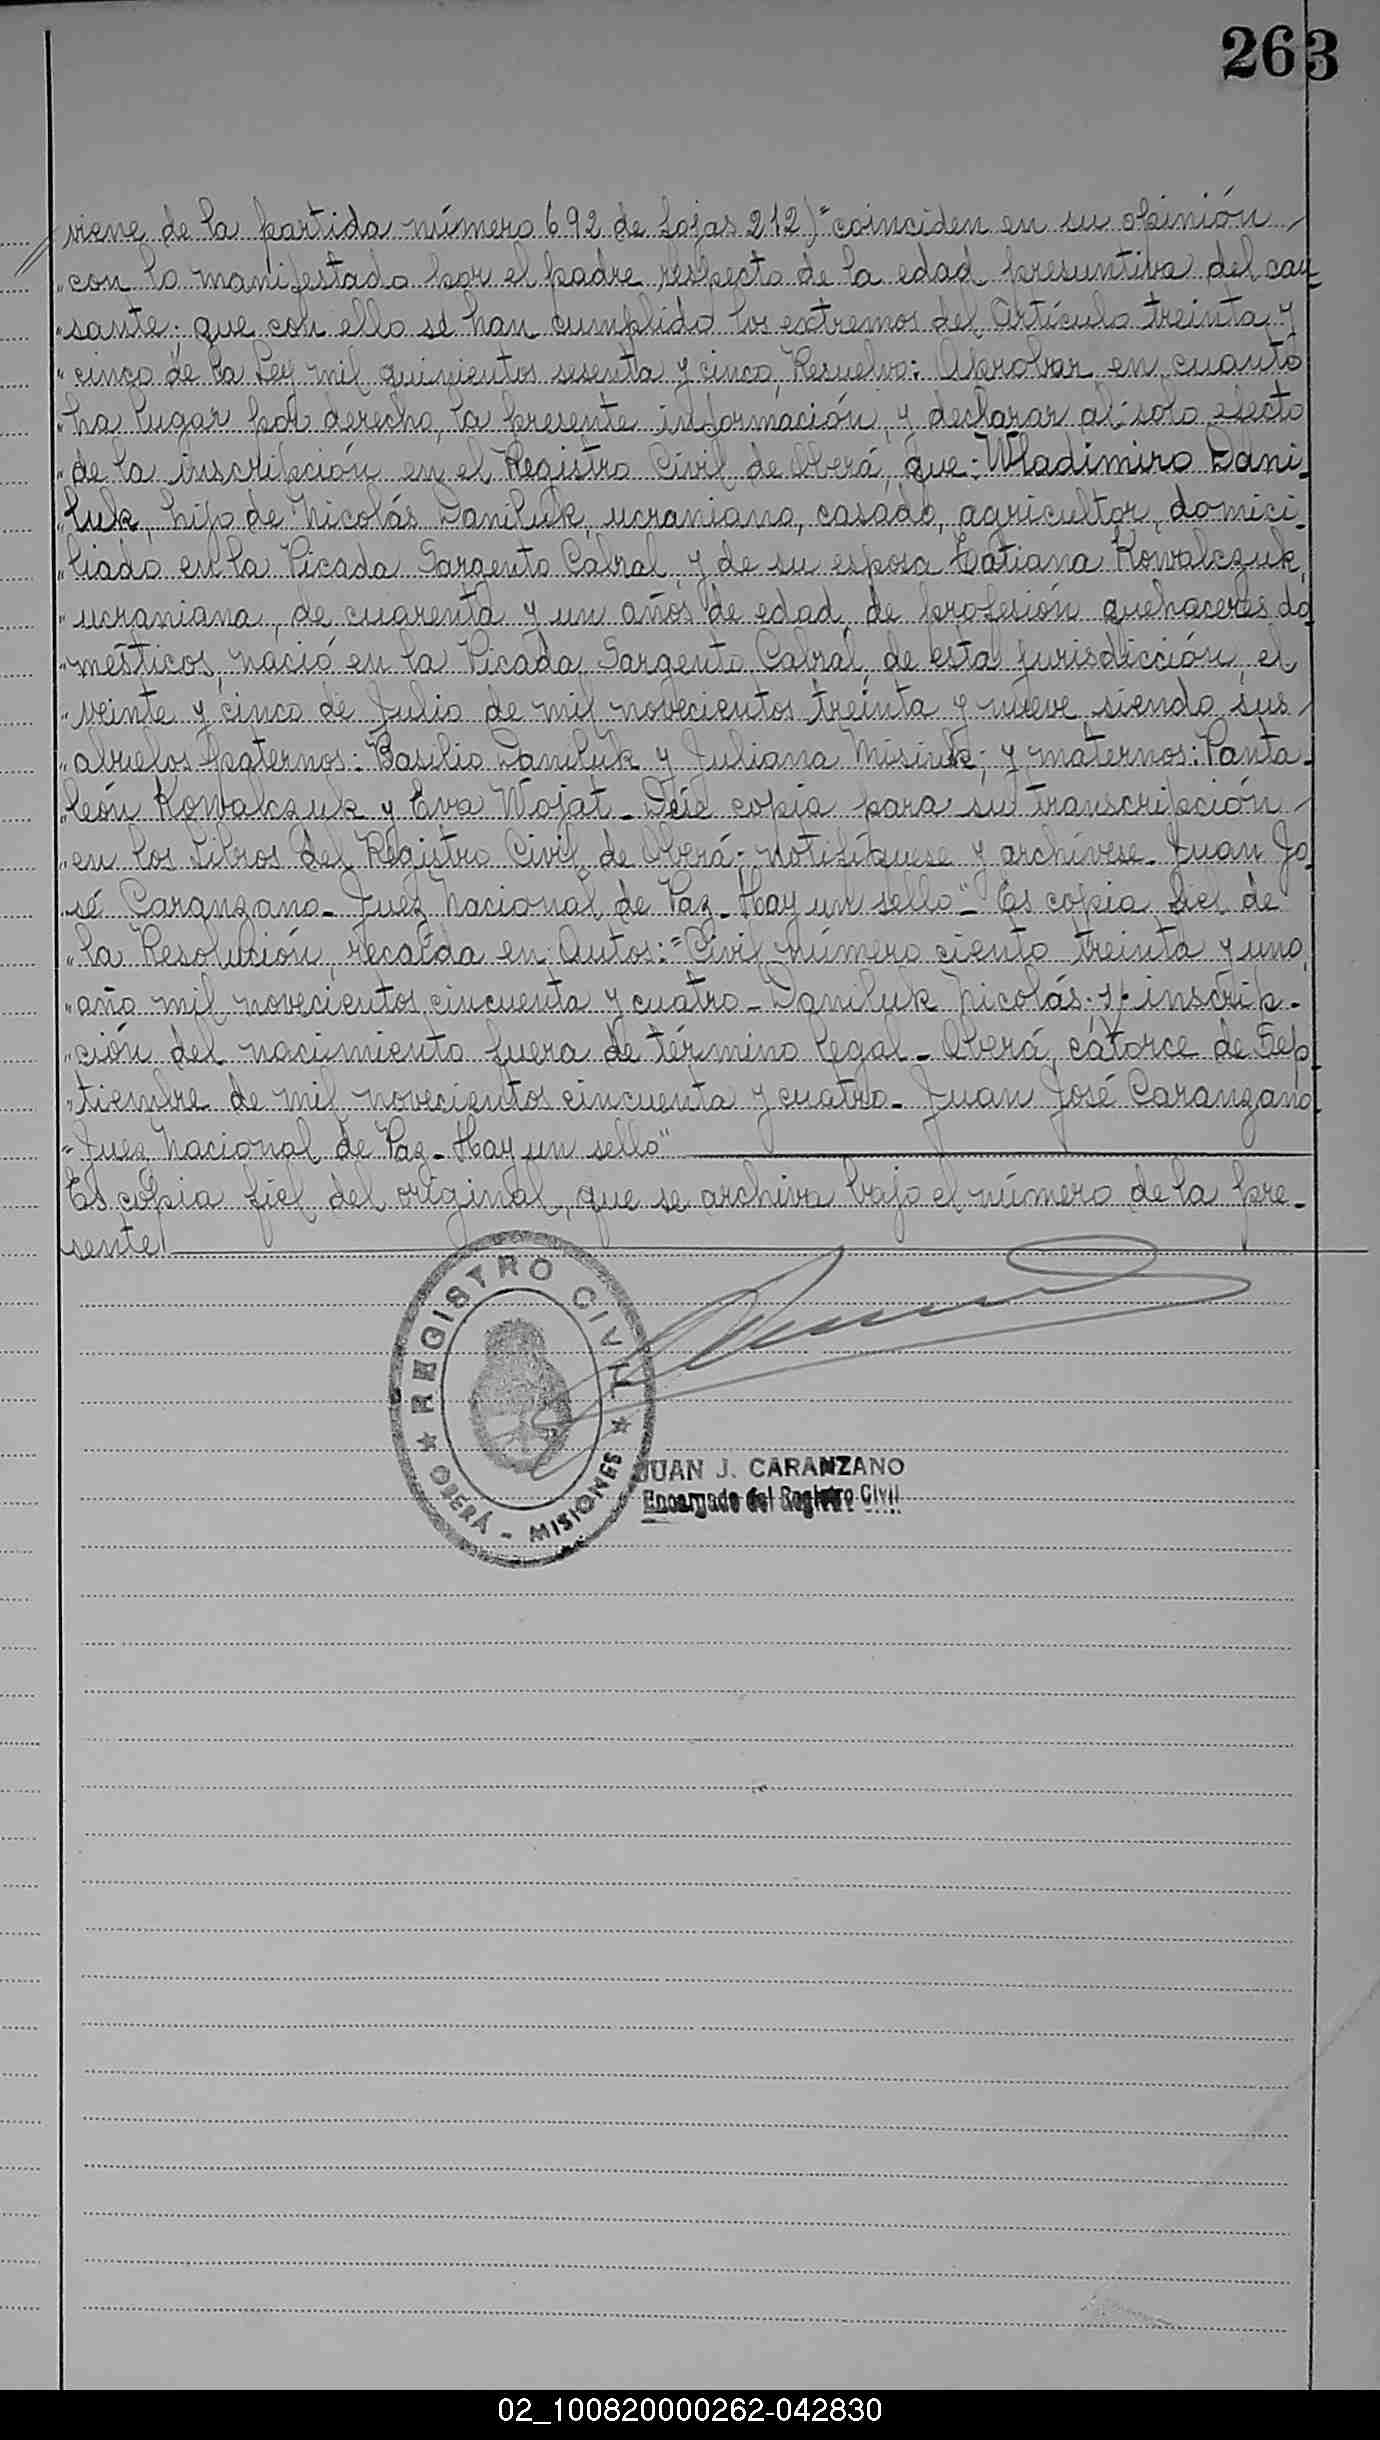 263
viene de la partida número 692 de fojas 212) "coinciden en su opinión
"con lo manifestado por el padre respecto de la edad presuntiva del cau-
"sante; que con ello se han cumplido los extremos del Artículo treinta y
"cinco de la Ley mil quinientos sesenta y cinco, Resuelvo: Aprobar en cuanto
"ha lugar por derecho, la presente información, y declarar al solo efecto
"de la inscripción en el Registro Civil de Oberá, que: Wladimiro Dani-
"luk, hijo de Nicolás Daniluk, ucraniano, casado, agricultor, domici-
"liado en la Picada Sargento Cabral, y de su esposa Tatiana Kowalczuk,
"ucraniana, de cuarenta y un años de edad, de profesión quehaceres do
"mésticos, nació en la Picada Sargento Cabral, de esta jurisdicción, el
"veinte y cinco de Julio de mil novecientos treinta y nueve, siendo sus
"abuelos paternos: Basilio Daniluk y Juliana Misiuk; y maternos: Panta-
"león Kowalczuk y Eva Wojat. Dése copia para su transcripción
"en los Libros del Registro Civil de Oberá; notifíquese y archívese. Juan Jo
"sé Caranzano - Juez Nacional de Paz - Hay un sello" - Es copia fiel de
"la Resolución, recaída en Autos: "Civil número ciento treinta y uno,
"año mil novecientos cincuenta y cuatro - Daniluk Nicolás. s/. inscrip-
"ción del nacimiento fuera de término legal - Oberá, catorce de Sep
"tiembre de mil novecientos cincuenta y cuatro - Juan José Caranzano.
"Juez Nacional de Paz - Hay un sello"
Es copia fiel del original, que se archiva bajo el número de la pre-
sente.
REGISTRO CIVIL
OBERÁ - MISIONES
JUAN J. CARANZANO
Encargado del Registro Civil
02_100820000262-042830